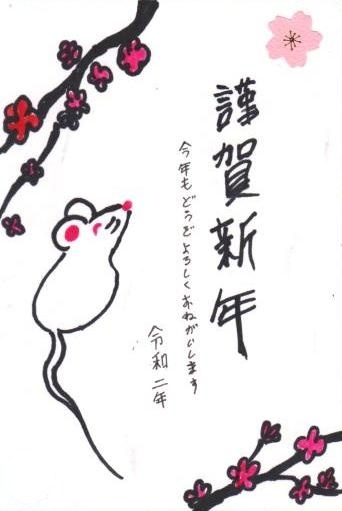 謹賀新年
今年もどうぞよろしくおねがいします
令和二年